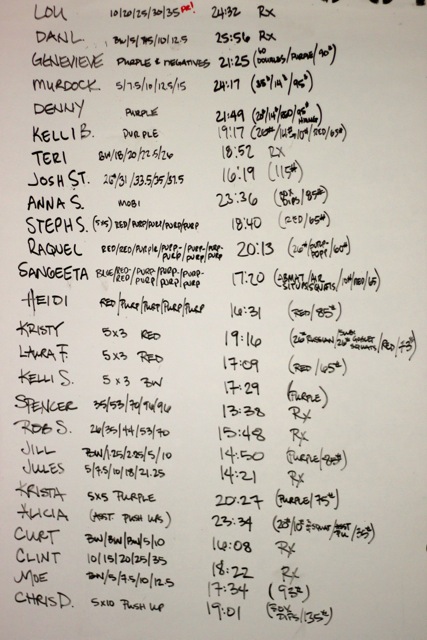 LOU 10/20/25/30/35 PR! 24:32 RX
DAN L. BW/5/7.5/10/12.5 25:56 RX
GENEVIEVE PURPLE & NEGATIVES 21:25 (60 DOUBLES/PURPLE/90#)
MURDOCK 5/7.5/10/12.5/15 24:17 (35#/14"/95#)
DENNY PURPLE 21:49
KELLI B. PURPLE 19:17
TERI BW/18/20/22.5/26 18:52 RX
JOSH ST. 26#/31/33.5/35/37.5 16:19 (115#)
ANNA S. MOBI 23:36 (BOX DIPS/85#)
STEPH S. RED/PURP/PURP/PURP/PURP 18:40 (RED/65#)
RAQUEL RED/RED/PURPLE/PURP-PURP/PURP-PURP/PURP-PURP 20:13
SANGEETA BLUE/RED-RED/PURP-PURP/PURP-PURP/PURP-PURP 17:20
HEIDI RED/PURP/PURP/PURP/PURP 16:31 (RED/85#)
KRISTY 5x3 RED 19:16
LAURA F. 5x3 RED 17:09 (RED/65#)
KELLI S. 5x3 BW 17:29 (PURPLE)
SPENCER 35/53/70/96/96 13:38 RX
ROB S. 26/35/44/53/70 15:48 RX
JILL BW/1.25/2.25/5/10 14:50
JULES 5/7.5/10/18/21.25 14:21 RX
KRISTA 5x5 PURPLE 20:27 (PURPLE/75#)
ALICIA (ASST. PUSH UPS) 23:34
CURT BW/BW/BW/5/10 16:08 RX
CLINT 10/15/20/25/35 18:22 RX
MOE BW/5/7.5/10/12.5 17:34 (93#)
CHRIS D. 5x10 PUSH UP 19:01 (BOX DIPS/135#)